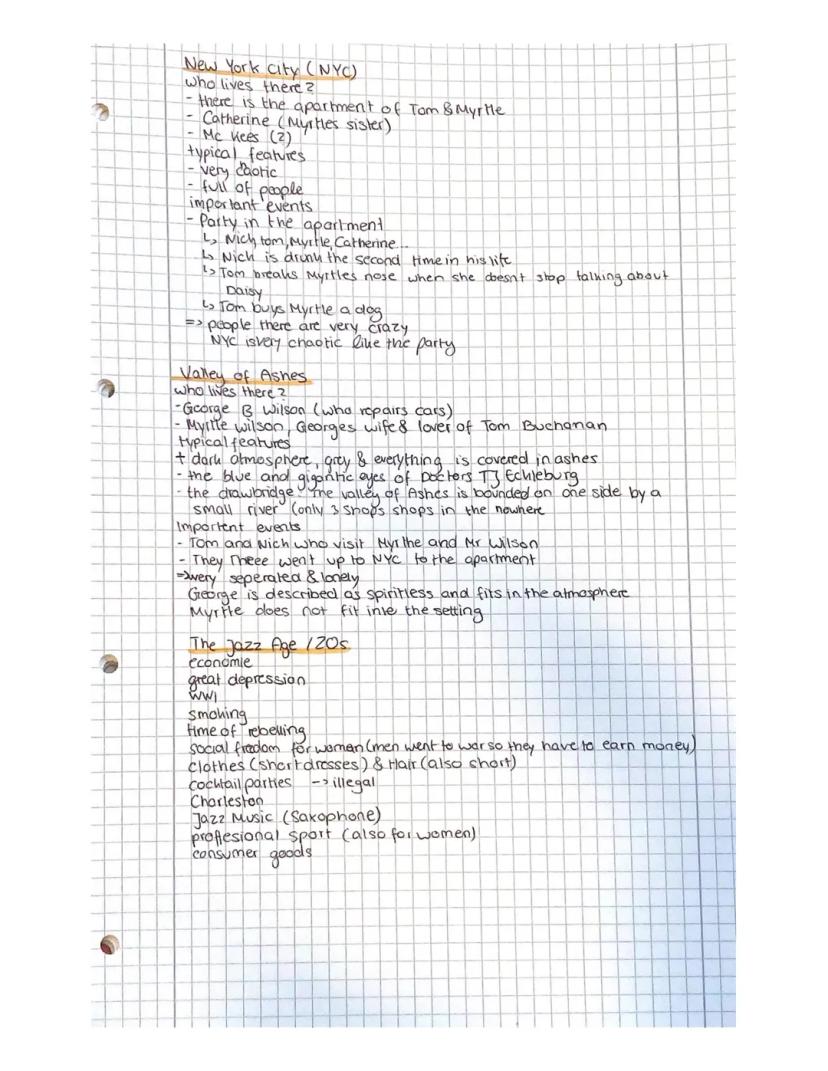 New York City (NYC)
who lives there?
- there is the apartment of Tom & Myrtle
- Catherine (Myrtles sister)
- Mc Kees (2)
typical features
- very caotic
- full of people
important events
- Party in the apartment
↳ Nick, tom, Myrtle, Catherine...
↳ Nick is drunk the second time in his life
↳ Tom breaks Myrtles nose when she doesnt stop talking about
Daisy
↳ Tom buys Myrtle a dog
=> people there are very crazy
NYC is very chaotic like the party
Valley of Ashes
who lives there?
- George B Wilson (who repairs cars)
- Myrtle wilson, Georges wife & lover of Tom Buchanan
typical features
+ dark atmosphere, grey & everything is covered in ashes
- the blue and gigantic eyes of Doctors TJ Eckleburg
- the drawbridge: The valley of Ashes is bounded on one side by a
small river (only 3 shops shops in the nowhere
Important events
- Tom and Nick who visit Myrthe and Mr Wilson
- They Theee went up to NYC to the apartment
=> very seperated & lonely
George is described as spiritless and fits in the atmosphere
Myrtle does not fit into the setting
The Jazz Age / 20s
economie
great depression
WW1
smoking
time of rebelling
social fredom for woman (men went to war so they have to earn money)
clothes (short dresses) & Hair (also short)
cocktail parties -> illegal
Charleston
Jazz Music (Saxophone)
proffesional sport (also for women)
consumer goods